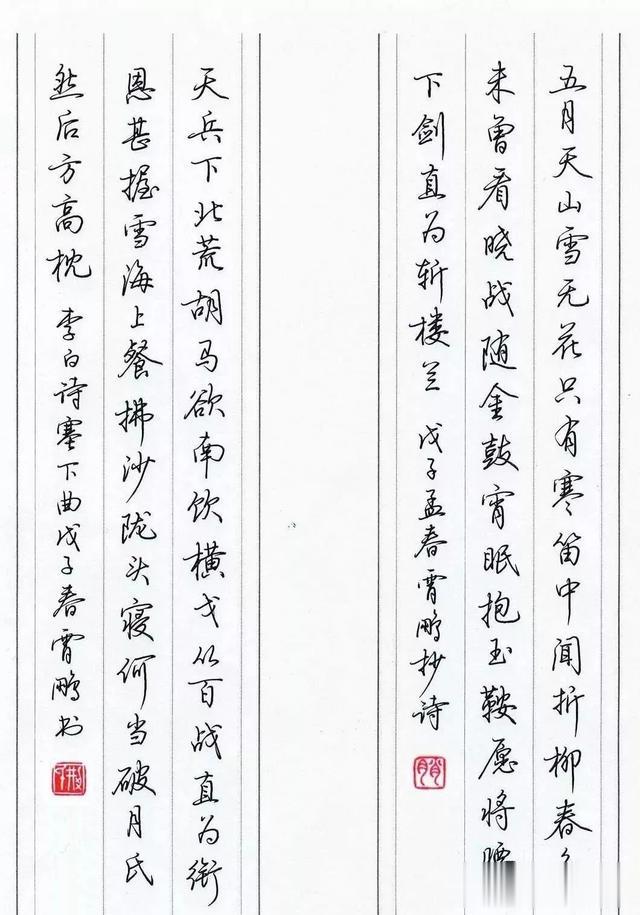 五月天山雪无花只有寒笛中闻折柳春
未曾看晓战随金鼓宵眠抱玉鞍愿将
下剑直为斩楼兰 戊子孟春霄鹏抄诗
天兵下北荒胡马欲南饮横戈从百战直为衔
恩甚握雪海上餐拂沙陇头寝何当破月氏
然后方高枕 李白诗塞下曲戊子春霄鹏书